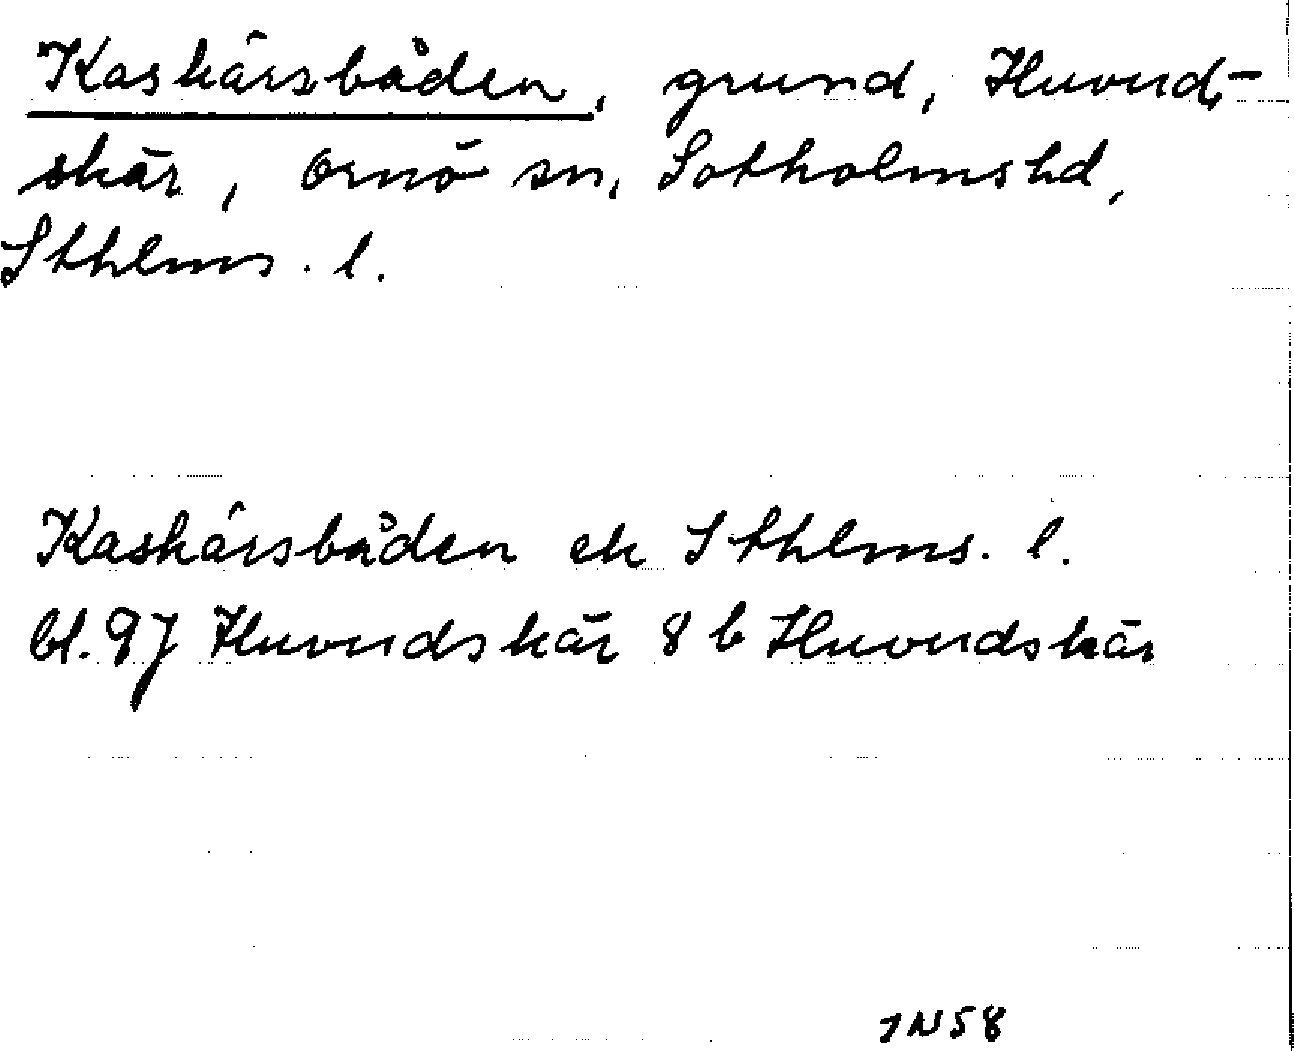 Kaskärsbåden, grund, Huvud-
skär, Ornö sn, Sotholms hd,
Sthlms. l.
Kaskärsbåden ek Sthlms. l.
bl. 97 Huvudskär 8 b Huvudskär
JN58